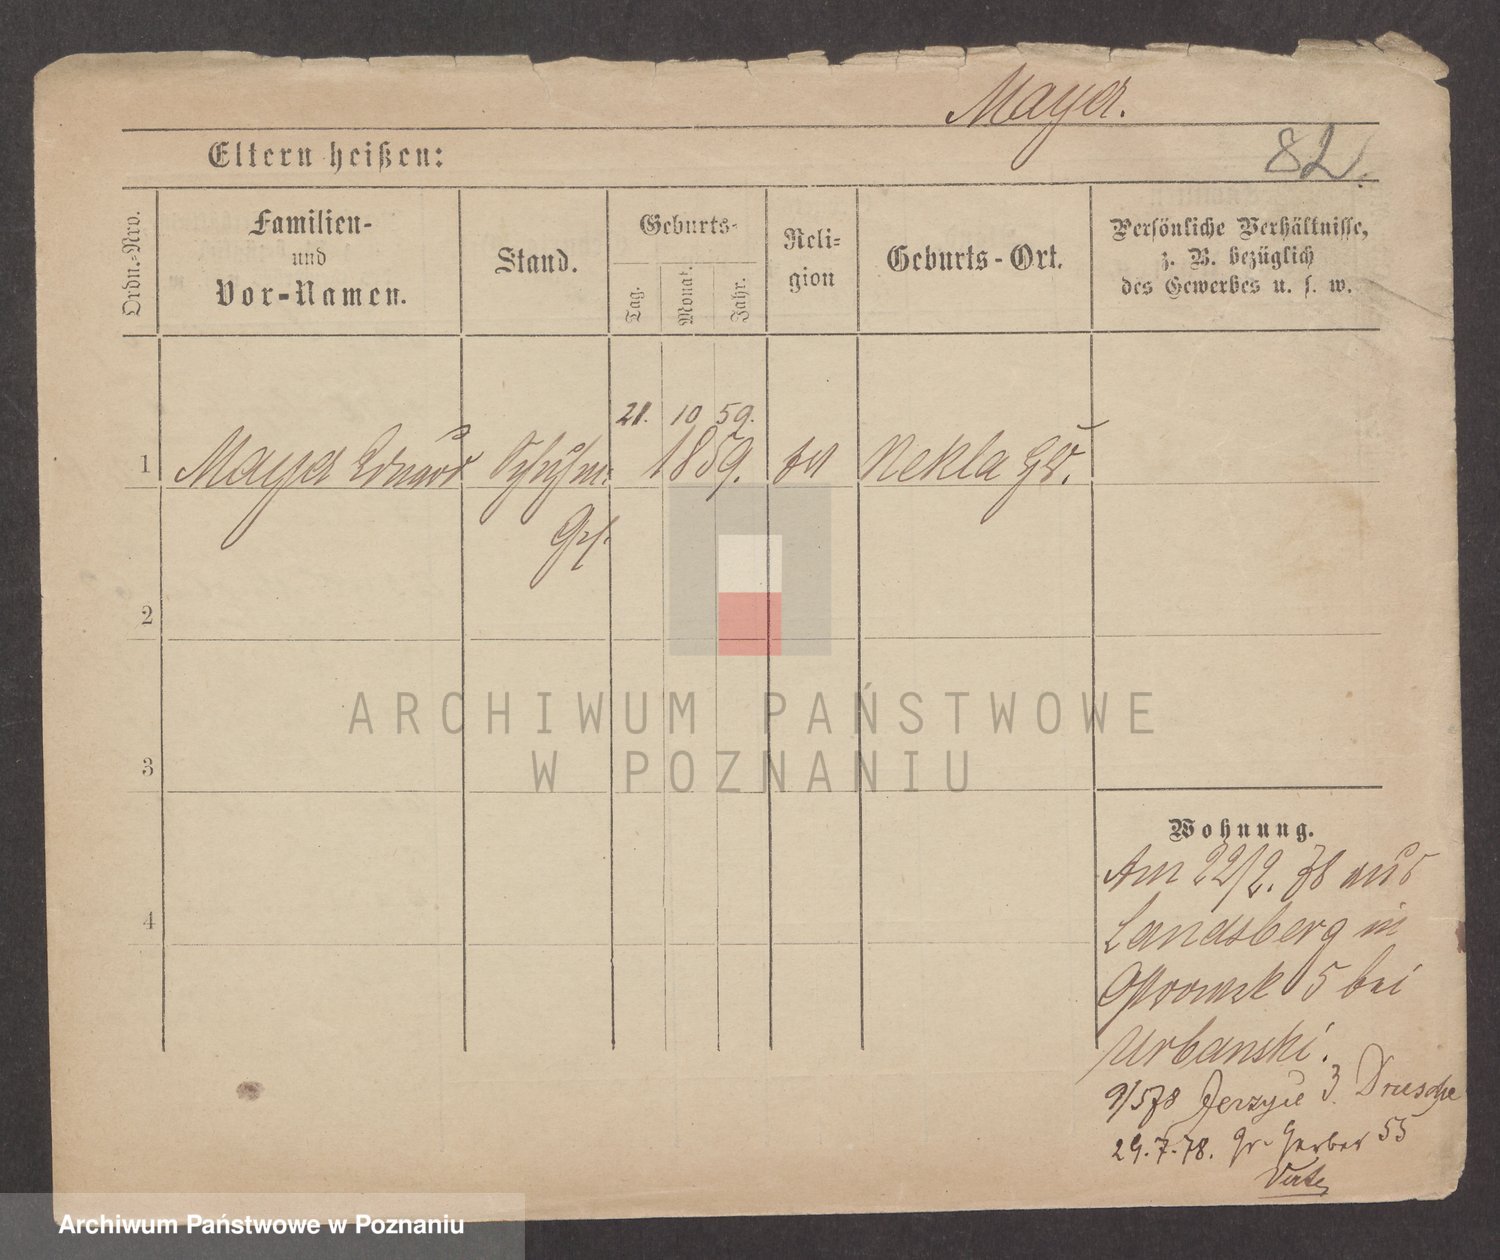 Mayer.
82.
Eltern heißen:
Ordn.-Nro.
Familien-
und
Vor-Namen.
Stand.
Geburts-
Tag.
Monat.
Jahr.
Reli-
gion
Geburts-Ort.
Persönliche Verhältnisse,
z. B. bezüglich
des Gewerbes u. s. w.
21. 10 59.
1 Mayer Eduard 1859. Nekla
2
3
4
Wohnung.
Am 22/2. 78 aus
Landsberg in
5 bei
Urbanski.
9/5 78 Jerzyce 3. Drusche
29.7.78. Gr. Gerber 55
ARCHIWUM PAŃSTWOWE
W POZNANIU
Archiwum Państwowe w Poznaniu